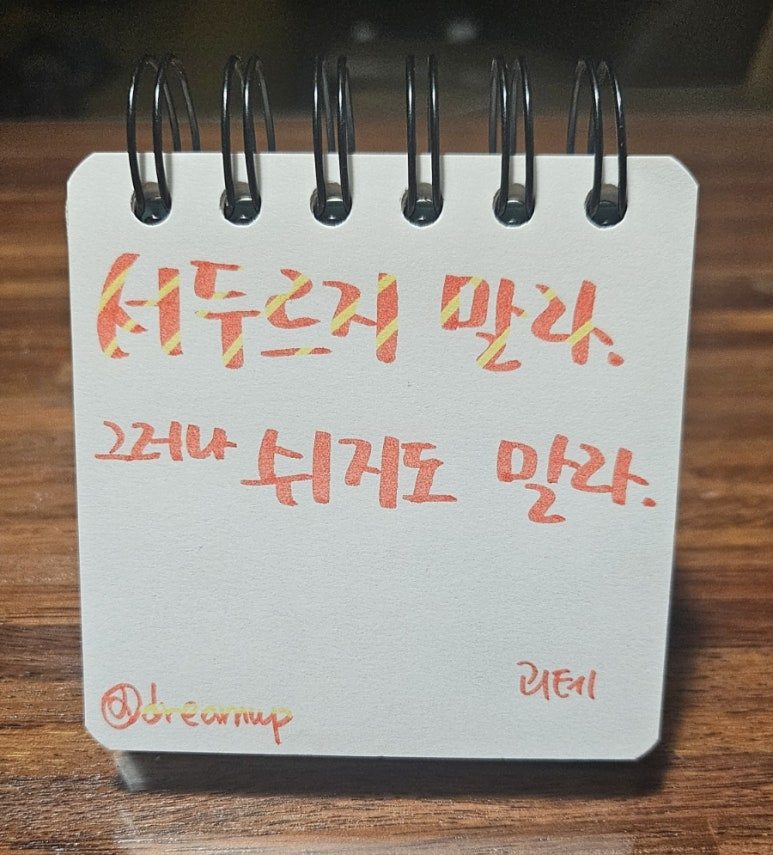 서두르지 말라.
그러나 쉬지도 말라.
괴테
@dreamup